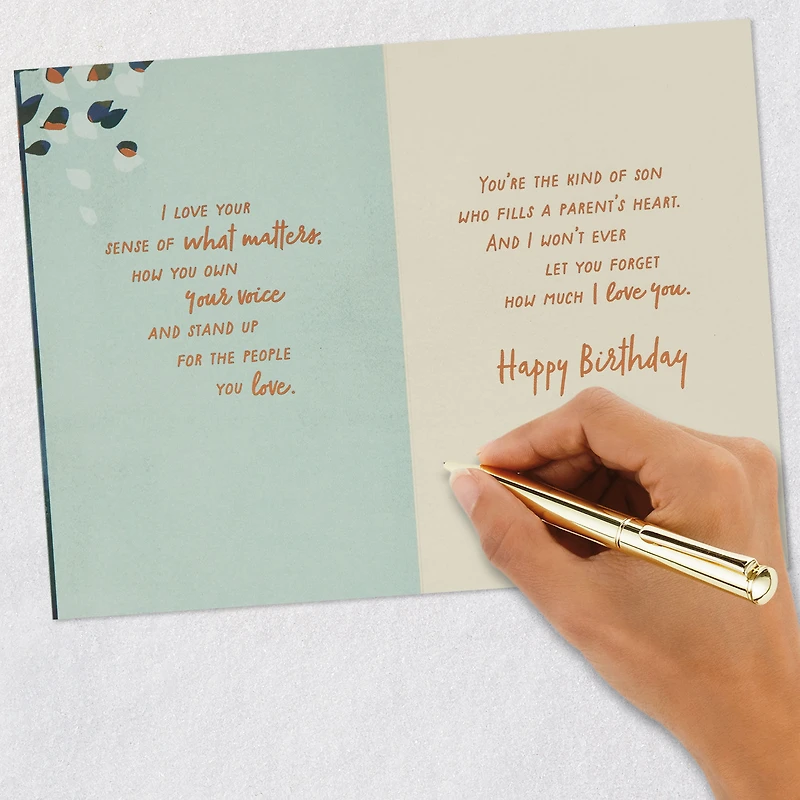 I LOVE YOUR
SENSE OF what matters,
HOW YOU OWN
your voice
AND STAND UP
FOR THE PEOPLE
YOU love.
YOU'RE THE KIND OF SON
WHO FILLS A PARENT'S HEART.
AND I WON'T EVER
LET YOU FORGET
HOW MUCH I love you.
Happy Birthday